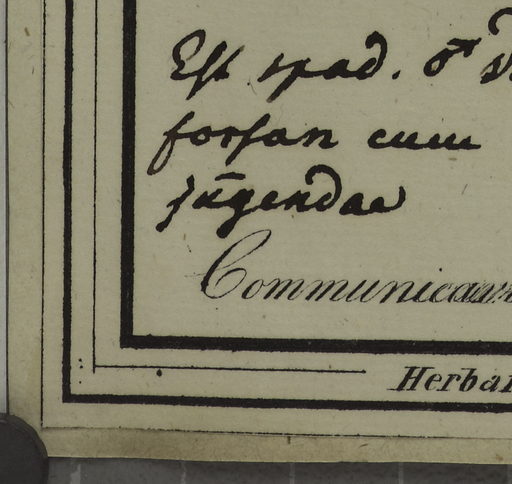 Est spad. ♂
forsan cum
jūgendae
Communicav
Herbar